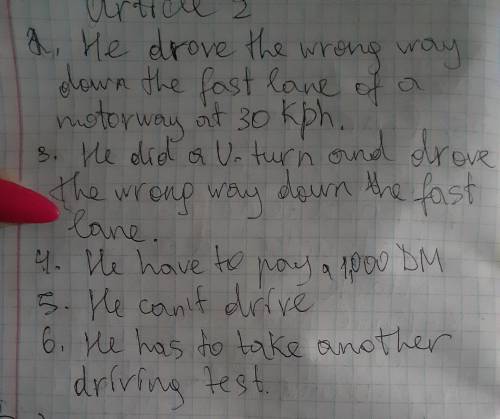 Article 2
2. He drove the wrong way
down the fast lane of a
motorway at 30 kph.
3. He did a U-turn and drove
the wrong way down the fast
lane.
4. He have to pay a 1,000 DM
5. He can't drive
6. He has to take another
driving test.